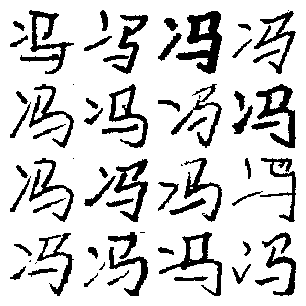 冯冯冯冯
冯冯冯冯
冯冯冯冯
冯冯冯冯